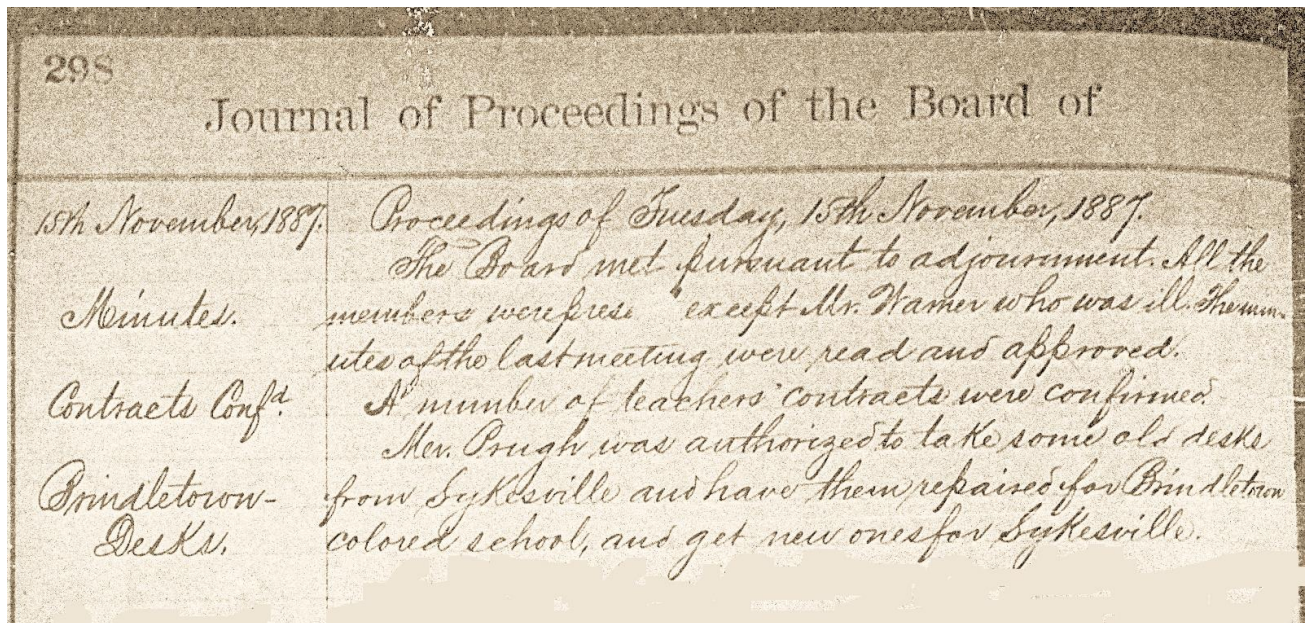 298
Journal of Proceedings of the Board of
15th November, 1887.
Proceedings of Tuesday, 15th November, 1887.
The Board met pursuant to adjournment. All the
Minutes.
members were prese except Mr. Warner who was ill. The min-
utes of the last meeting were read and approved.
Contracts Conf'd.
A number of teachers' contracts were confirmed.
Mr. Prugh was authorized to take some old desks
Brindletown-
from Sykesville and have them repaired for Brindletown
Desks.
colored school, and get new ones for Sykesville.